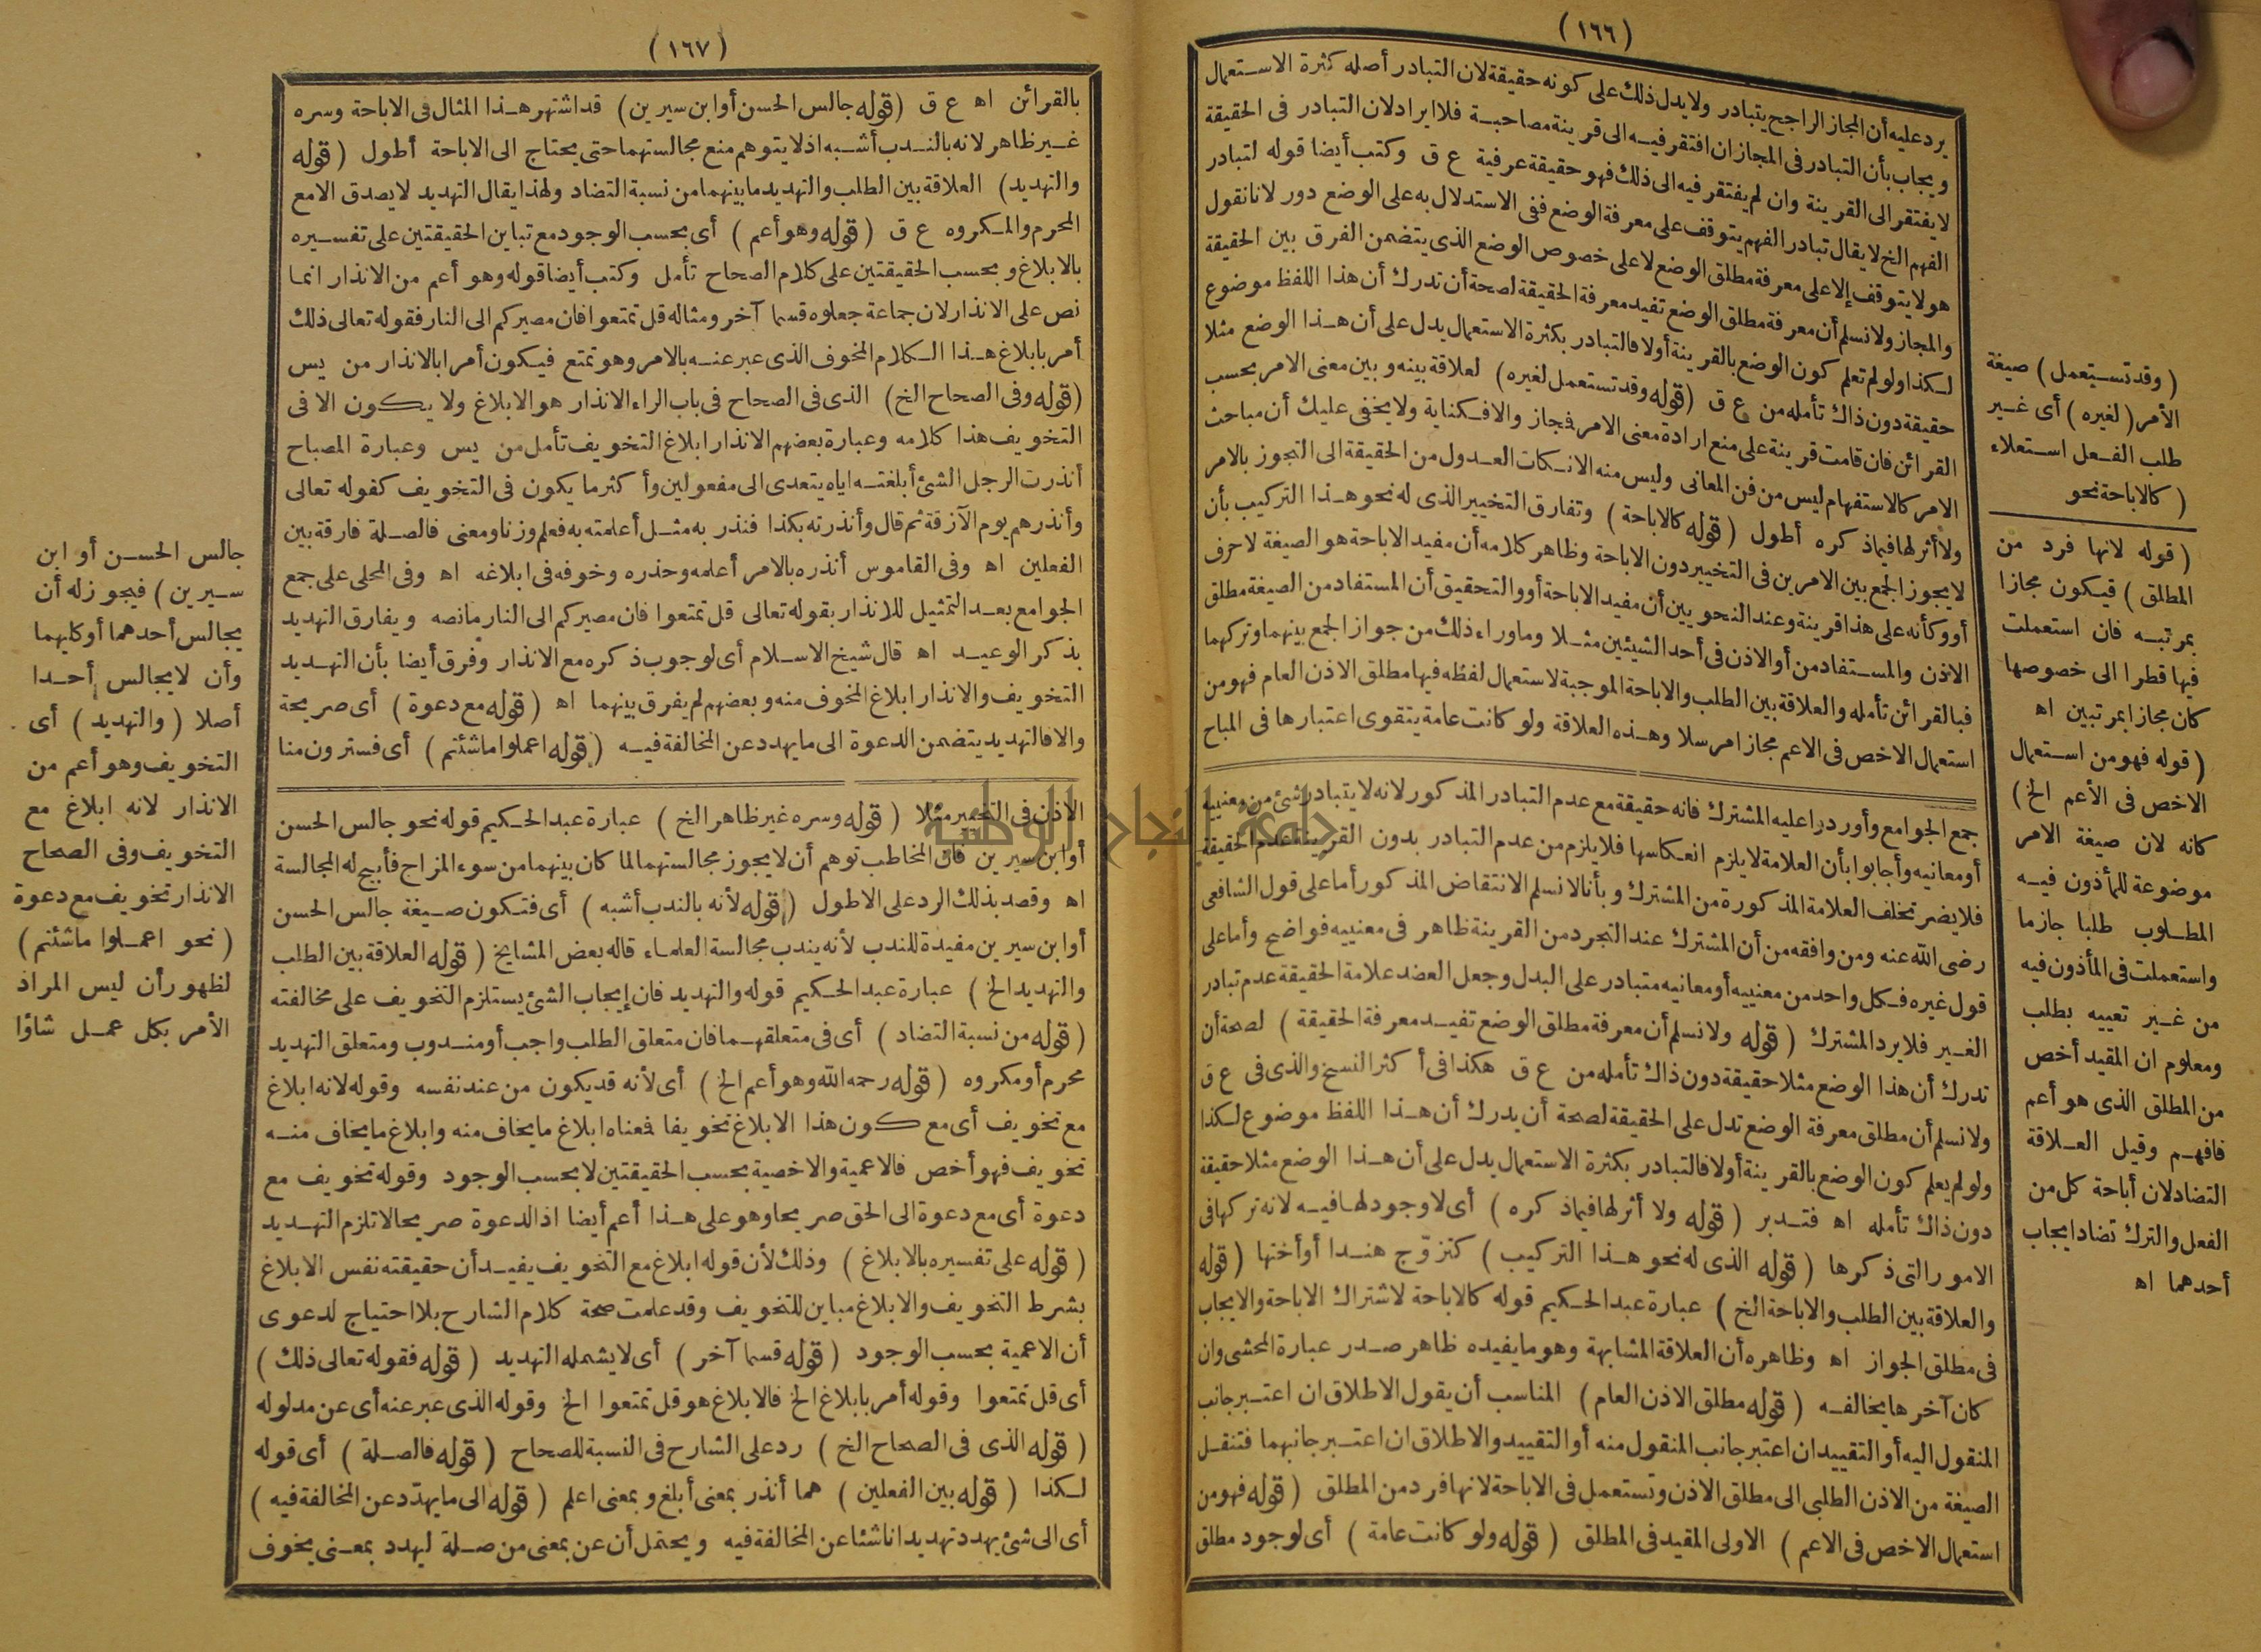 (١٦٦)
يرد عليه أن المجاز الراجح يتبادر ولا يدل ذلك على كونه حقيقة لان التبادر أصله كثرة الاستعمال
ويجاب بأن التبادر فى المجاز ان افتقر فيه الى قرينة مصاحبة فلا ايراد لان التبادر فى الحقيقة
لا يفتقر الى القرينة وان لم يفتقر فيه الى ذلك فهو حقيقة عرفية ع ق وكتب أيضا قوله لتبادر
الفهم الخ لا يقال تبادر الفهم يتوقف على معرفة الوضع ففى الاستدلال به على الوضع دور لانا نقول
هو لا يتوقف إلا على معرفة مطلق الوضع لا على خصوص الوضع الذى يتضمن الفرق بين الحقيقة
والمجاز ولا نسلم أن معرفة مطلق الوضع تفيد معرفة الحقيقة لصحة أن تدرك أن هذا اللفظ موضوع
لكذا ولو لم تعلم كون الوضع بالقرينة أولا فالتبادر بكثرة الاستعمال يدل على أن هذا الوضع مثلا
حقيقة دون ذاك تأمله من ع ق (قوله وقد تستعمل لغيره) لعلاقة بينه وبين معنى الامر بحسب
القرائن فان قامت قرينة على منع ارادة معنى الامر فمجاز والا فكناية ولا يخفى عليك أن مباحث
الامر كالاستفهام ليس من فن المعانى وليس منه الا نكات العدول من الحقيقة الى التجوز بالامر
ولا أثر لها فيما ذكره أطول (قوله كالاباحة) وتفارق التخيير الذى له نحو هذا التركيب بأن
لا يجوز الجمع بين الامرين فى التخيير دون الاباحة وظاهر كلامه أن مفيد الاباحة هو الصيغة لا حرف
أو وكأنه على هذا قرينة وعند النحويين أن مفيد الاباحة أو والتحقيق أن المستفاد من الصيغة مطلق
الاذن والمستفاد من أو الاذن فى أحد الشيئين مثلا وما وراء ذلك من جواز الجمع بينهما وتركهما
فبالقرائن تأمله والعلاقة بين الطلب والاباحة الموجبة لاستعمال لفظه فيها مطلق الاذن العام فهو من
استعمال الاخص فى الاعم مجازا مرسلا وهذه العلاقة ولو كانت عامة يتقوى اعتبارها فى المباح
جمع الجوامع وأورد اعليه المشترك فانه حقيقة مع عدم التبادر المذكور لانه لا يتبادر شئ من معنييه
أو معانيه وأجابوا بأن العلامة لا يلزم انعكاسها فلا يلزم من عدم التبادر بدون القرينة عدم الحقيقة
فلا يضر تخلف العلامة المذكورة من المشترك وبأنا لا نسلم الانتقاض المذكور أما على قول الشافعى
رضى الله عنه ومن وافقه من أن المشترك عند التجرد من القرينة ظاهر فى معنييه فواضح وأما على
قول غيره فكل واحد من معنييه أو معانيه متبادر على البدل وجعل العضد علامة الحقيقة عدم تبادر
الغير فلا يرد المشترك (قوله ولا نسلم أن معرفة مطلق الوضع تفيد معرفة الحقيقة) لصحة أن
تدرك أن هذا الوضع مثلا حقيقة دون ذاك تأمله من ع ق هكذا فى أكثر النسخ والذى فى ع ق
ولا نسلم أن مطلق معرفة الوضع تدل على الحقيقة لصحة أن يدرك أن هذا اللفظ موضوع لكذا
ولو لم يعلم كون الوضع بالقرينة أولا فالتبادر بكثرة الاستعمال يدل على أن هذا الوضع مثلا حقيقة
دون ذاك تأمله اه فتدبر (قوله ولا أثر لها فيما ذكره) أى لا وجود لها فيه لانه تركها فى
الامور التى ذكرها (قوله الذى له نحو هذا التركيب) كتزوّج هندا أو أختها (قوله
والعلاقة بين الطلب والاباحة الخ) عبارة عبد الحكيم قوله كالاباحة لاشتراك الاباحة والايجاب
فى مطلق الجواز اه وظاهره أن العلاقة المشابهة وهو ما يفيده ظاهر صدر عبارة المحشى وان
كان آخرها يخالفه (قوله مطلق الاذن العام) المناسب أن يقول الاطلاق ان اعتبر جانب
المنقول اليه أو التقييد ان اعتبر جانب المنقول منه أو التقييد والاطلاق ان اعتبر جانبهما فتنقل
الصيغة من الاذن الطلبى الى مطلق الاذن وتستعمل فى الاباحة لانها فرد من المطلق (قوله فهو من
استعمال الاخص فى الاعم) الاولى المقيد فى المطلق (قوله ولو كانت عامة) أى لوجود مطلق
(وقد تستعمل) صيغة
الأمر (لغيره) أى غير
طلب الفعل استعلاء
(كالاباحة نحو
(قوله لانها فرد من
المطلق) فيكون مجازا
بمرتبه فان استعملت
فيها قطرا الى خصوصها
كان مجازا بمرتبين اه
(قوله فهو من استعمال
الاخص فى الأعم الخ)
كانه لان صيغة الامر
موضوعة للمأذون فيه
المطلوب طلبا جازما
واستعملت فى المأذون فيه
من غير تعييه بطلب
ومعلوم ان المقيد أخص
من المطلق الذى هو أعم
فافهم وقيل العلاقة
التضاد لان أباحة كل من
الفعل والترك تضاد ايجاب
أحدهما اه
(١٦٧)
بالقرائن اه ع ق (قوله جالس الحسن أو ابن سيرين) قد اشتهر هذا المثال فى الاباحة وسره
غير ظاهر لانه بالندب أشبه اذ لا يتوهم منع مجالستهما حتى يحتاج الى الاباحة أطول (قوله
والتهديد) العلاقة بين الطلب والتهديد ما بينهما من نسبة التضاد ولهذا يقال التهديد لا يصدق الا مع
المحرم والمكروه ع ق (قوله وهو أعم) أى بحسب الوجود مع تباين الحقيقتين على تفسيره
بالابلاغ وبحسب الحقيقتين على كلام الصحاح تأمل وكتب أيضا قوله وهو أعم من الانذار انما
نص على الانذار لان جماعة جعلوه قسما آخر ومثاله قل تمتعوا فان مصيركم الى النار فقوله تعالى ذلك
أمر بابلاغ هذا الكلام المخوف الذى عبر عنه بالامر وهو تمتع فيكون أمرا بالانذار من يس
(قوله وفى الصحاح الخ) الذى فى الصحاح فى باب الراء الانذار هو الابلاغ ولا يكون الا فى
التخويف هذا كلامه وعبارة بعضهم الانذار ابلاغ التخويف تأمل من يس وعبارة المصباح
أنذرت الرجل الشئ أبلغته اياه يتعدى الى مفعولين وأكثر ما يكون فى التخويف كقوله تعالى
وأنذرهم يوم الآزفة ثم قال وأنذرته بكذا فنذر به مثل أعلمته به فعلم وزنا ومعنى فالصلة فارقة بين
الفعلين اه وفى القاموس أنذره بالامر أعلمه وحذره وخوفه فى ابلاغه اه وفى المحلى على جمع
الجوامع بعد التمثيل للانذار بقوله تعالى قل تمتعوا فان مصيركم الى النار ما نصه ويفارق التهديد
بذكر الوعيد اه قال شيخ الاسلام أى لوجوب ذكره مع الانذار وفرق أيضا بأن التهديد
التخويف والانذار ابلاغ المخوف منه وبعضهم لم يفرق بينهما اه (قوله مع دعوة) أى صريحة
والا فالتهديد يتضمن الدعوة الى ما يهدد عن المخالفة فيه (قوله اعملوا ما شئتم) أى فسترون منا
الاذن فى التخيير مثلا (قوله وسره غير ظاهر الخ) عبارة عبد الحكيم قوله نحو جالس الحسن
أو ابن سيرين فان المخاطب توهم أن لا يجوز مجالستهما لما كان بينهما من سوء المزاج فأبيح له المجالسة
اه وقصد بذلك الرد على الاطول (قوله لأنه بالندب أشبه) أى فتكون صيغة جالس الحسن
أو ابن سيرين مفيدة للندب لأنه يندب مجالسة العلماء قاله بعض المشايخ (قوله العلاقة بين الطلب
والتهديد الخ) عبارة عبد الحكيم قوله والتهديد فان إيجاب الشئ يستلزم التخويف على مخالفته
(قوله من نسبة التضاد) أى فى متعلقهما فان متعلق الطلب واجب أو مندوب ومتعلق التهديد
محرم أو مكروه (قوله رحمه الله وهو أعم الخ) أى لأنه قد يكون من عند نفسه وقوله لانه ابلاغ
مع تخويف أى مع كون هذا الابلاغ تخويفا فمعناه ابلاغ ما يخاف منه وابلاغ ما يخاف منه
تخويف فهو أخص فالاعمية والاخصية بحسب الحقيقتين لا بحسب الوجود وقوله تخويف مع
دعوة أى مع دعوة الى الحق صريحا وهو على هذا أعم أيضا اذ الدعوة صريحا لا تلزم التهديد
(قوله على تفسيره بالابلاغ) وذلك لأن قوله ابلاغ مع التخويف يفيد أن حقيقته نفس الابلاغ
بشرط التخويف والابلاغ مباين للتخويف وقد علمت صحة كلام الشارح بلا احتياج لدعوى
أن الاعمية بحسب الوجود (قوله قسما آخر) أى لا يشمله التهديد (قوله فقوله تعالى ذلك)
أى قل تمتعوا وقوله أمر بابلاغ الخ فالابلاغ هو قل تمتعوا الخ وقوله الذى عبر عنه أى عن مدلوله
(قوله الذى فى الصحاح الخ) رد على الشارح فى النسبة للصحاح (قوله فالصلة) أى قوله
لكذا (قوله بين الفعلين) هما أنذر بمعنى أبلغ وبمعنى اعلم (قوله الى ما يهدّد عن المخالفة فيه)
أى الى شئ يهدد تهديدا ناشئا عن المخالفة فيه ويحتمل أن عن بمعنى من صلة ليهدد بمعنى يخوف
جالس الحسن أو ابن
سيرين) فيجوز له أن
يجالس أحدهما أو كليهما
وأن لا يجالس أحدا
أصلا (والتهديد) أى
التخويف وهو أعم من
الانذار لانه ابلاغ مع
التخويف وفى الصحاح
الانذار تخويف مع دعوة
(نحو اعملوا ما شئتم)
لظهور أن ليس المراد
الأمر بكل عمل شاؤا
جامعة النجاح الوطنية